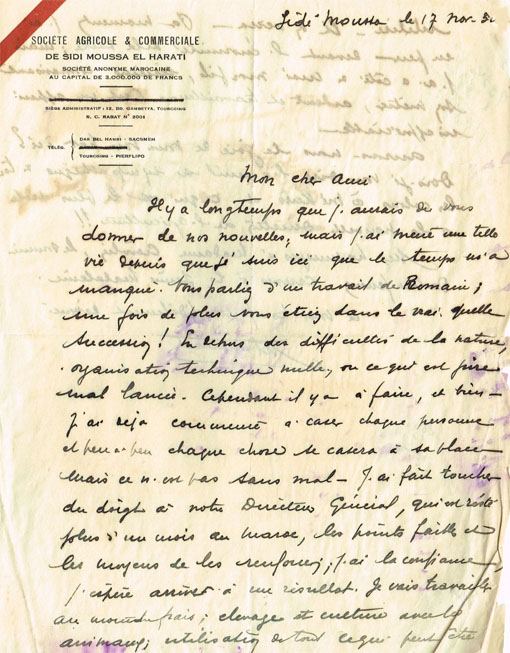 Sidi Moussa le 17 Nov. 31
SOCIÉTÉ AGRICOLE & COMMERCIALE
DE SIDI MOUSSA EL HARATI
SOCIÉTÉ ANONYME MAROCAINE
AU CAPITAL DE 3.000.000 DE FRANCS
SIÈGE ADMINISTRATIF : 12, BD. GAMBETTA, TOURCOING
R. C. RABAT N° 2001
TÉLÉG. DAR BEL HAMRI - SACSMEH
TOURCOING - PIERFLIPO
Mon cher Ami
Il y a longtemps que j'aurais dû vous
donner de nos nouvelles, mais j'ai mené une telle
vie depuis que je suis ici que le temps m'a
manqué. Vous parliez d'un travail de Romain ;
une fois de plus vous étiez dans le vrai. quelle
succession ! En dehors des difficultés de la nature,
organisation technique nulle, ou ce qui est pire
mal lancée. Cependant il y a à faire, et bien -
j'ai déjà commencé à caser chaque personne
et peu à peu chaque chose se casera à sa place
mais ce n'est pas sans mal - J'ai fait toucher
du doigt à notre Directeur Général, qui est resté
plus d'un mois au Maroc, les points faibles et
les moyens de les renforcer ; j'ai la confiance,
j'espère arriver à un résultat. Je vais travailler
au moindre frais ; élevage et culture avec les
animaux ; utilisation de tout ce qui peut être